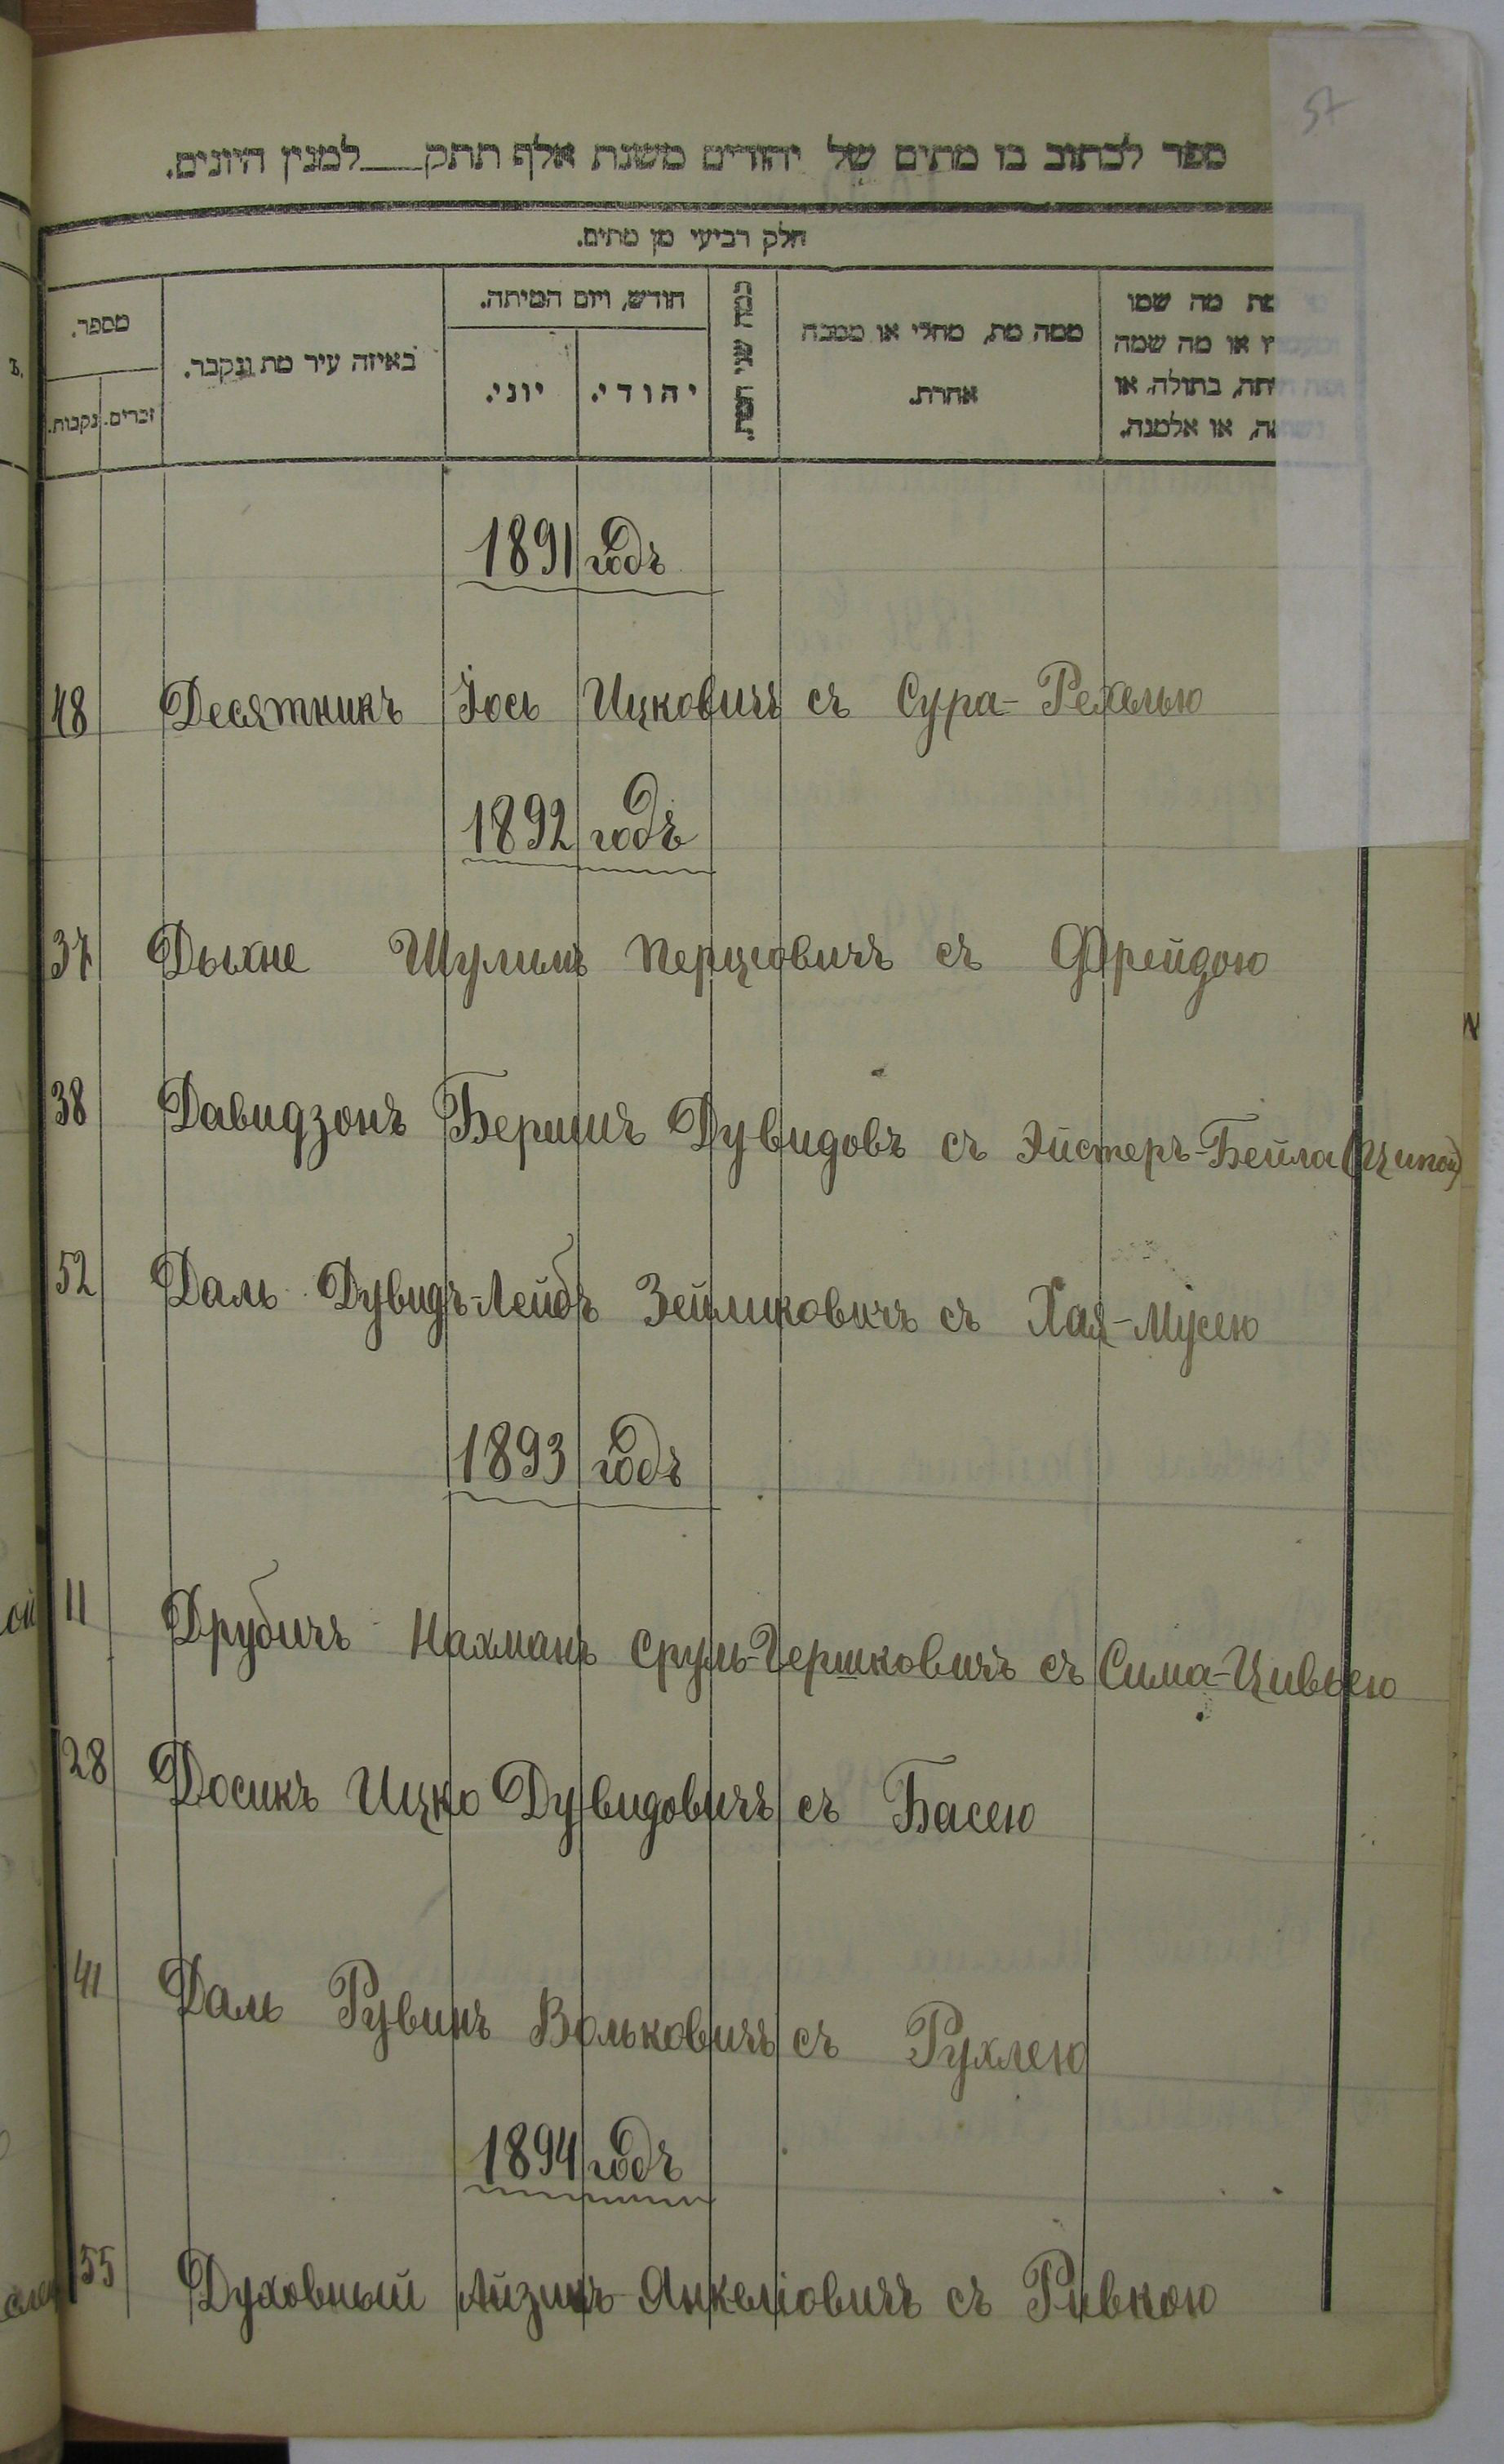 57
ספר לכתוב בו מתים של יהודים משנת אלף תתק___למנין היונים.
חלק רביעי מן מתים.
מספר.
זכרים.
נקבות.
באיזה עיר מת ונקבר.
חודש, ויום המיתה.
יוני.
יהודי.
כמה שני המת.
ממה מת, מחלי או ממכה
אחרת.
מת מה שמו
או מה שמה
בתולה, או
או אלמנה.
1891 годъ
48 Десятникъ Іось Ицковичъ съ Сура-Рехлью
1892 годъ
37 Дыхне Шулимъ Перцовичъ съ Фрейдою
38 Давидзонъ Бершъ Дувидовъ съ Эйстеръ-Бейла (Ципой)
52 Даль Дувидъ-Лейбъ Зейликовичъ съ Хая-Мусею
1893 годъ
11 Друбичъ Нахманъ Сруль-Гершковичъ съ Сима-Цивьею
28 Досикъ Ицко Дувидовичъ съ Басею
41 Даль Рувинъ Вольковичъ съ Рухлею
1894 годъ
55 Духовный Айзикъ Янкеліовичъ съ Ривкою